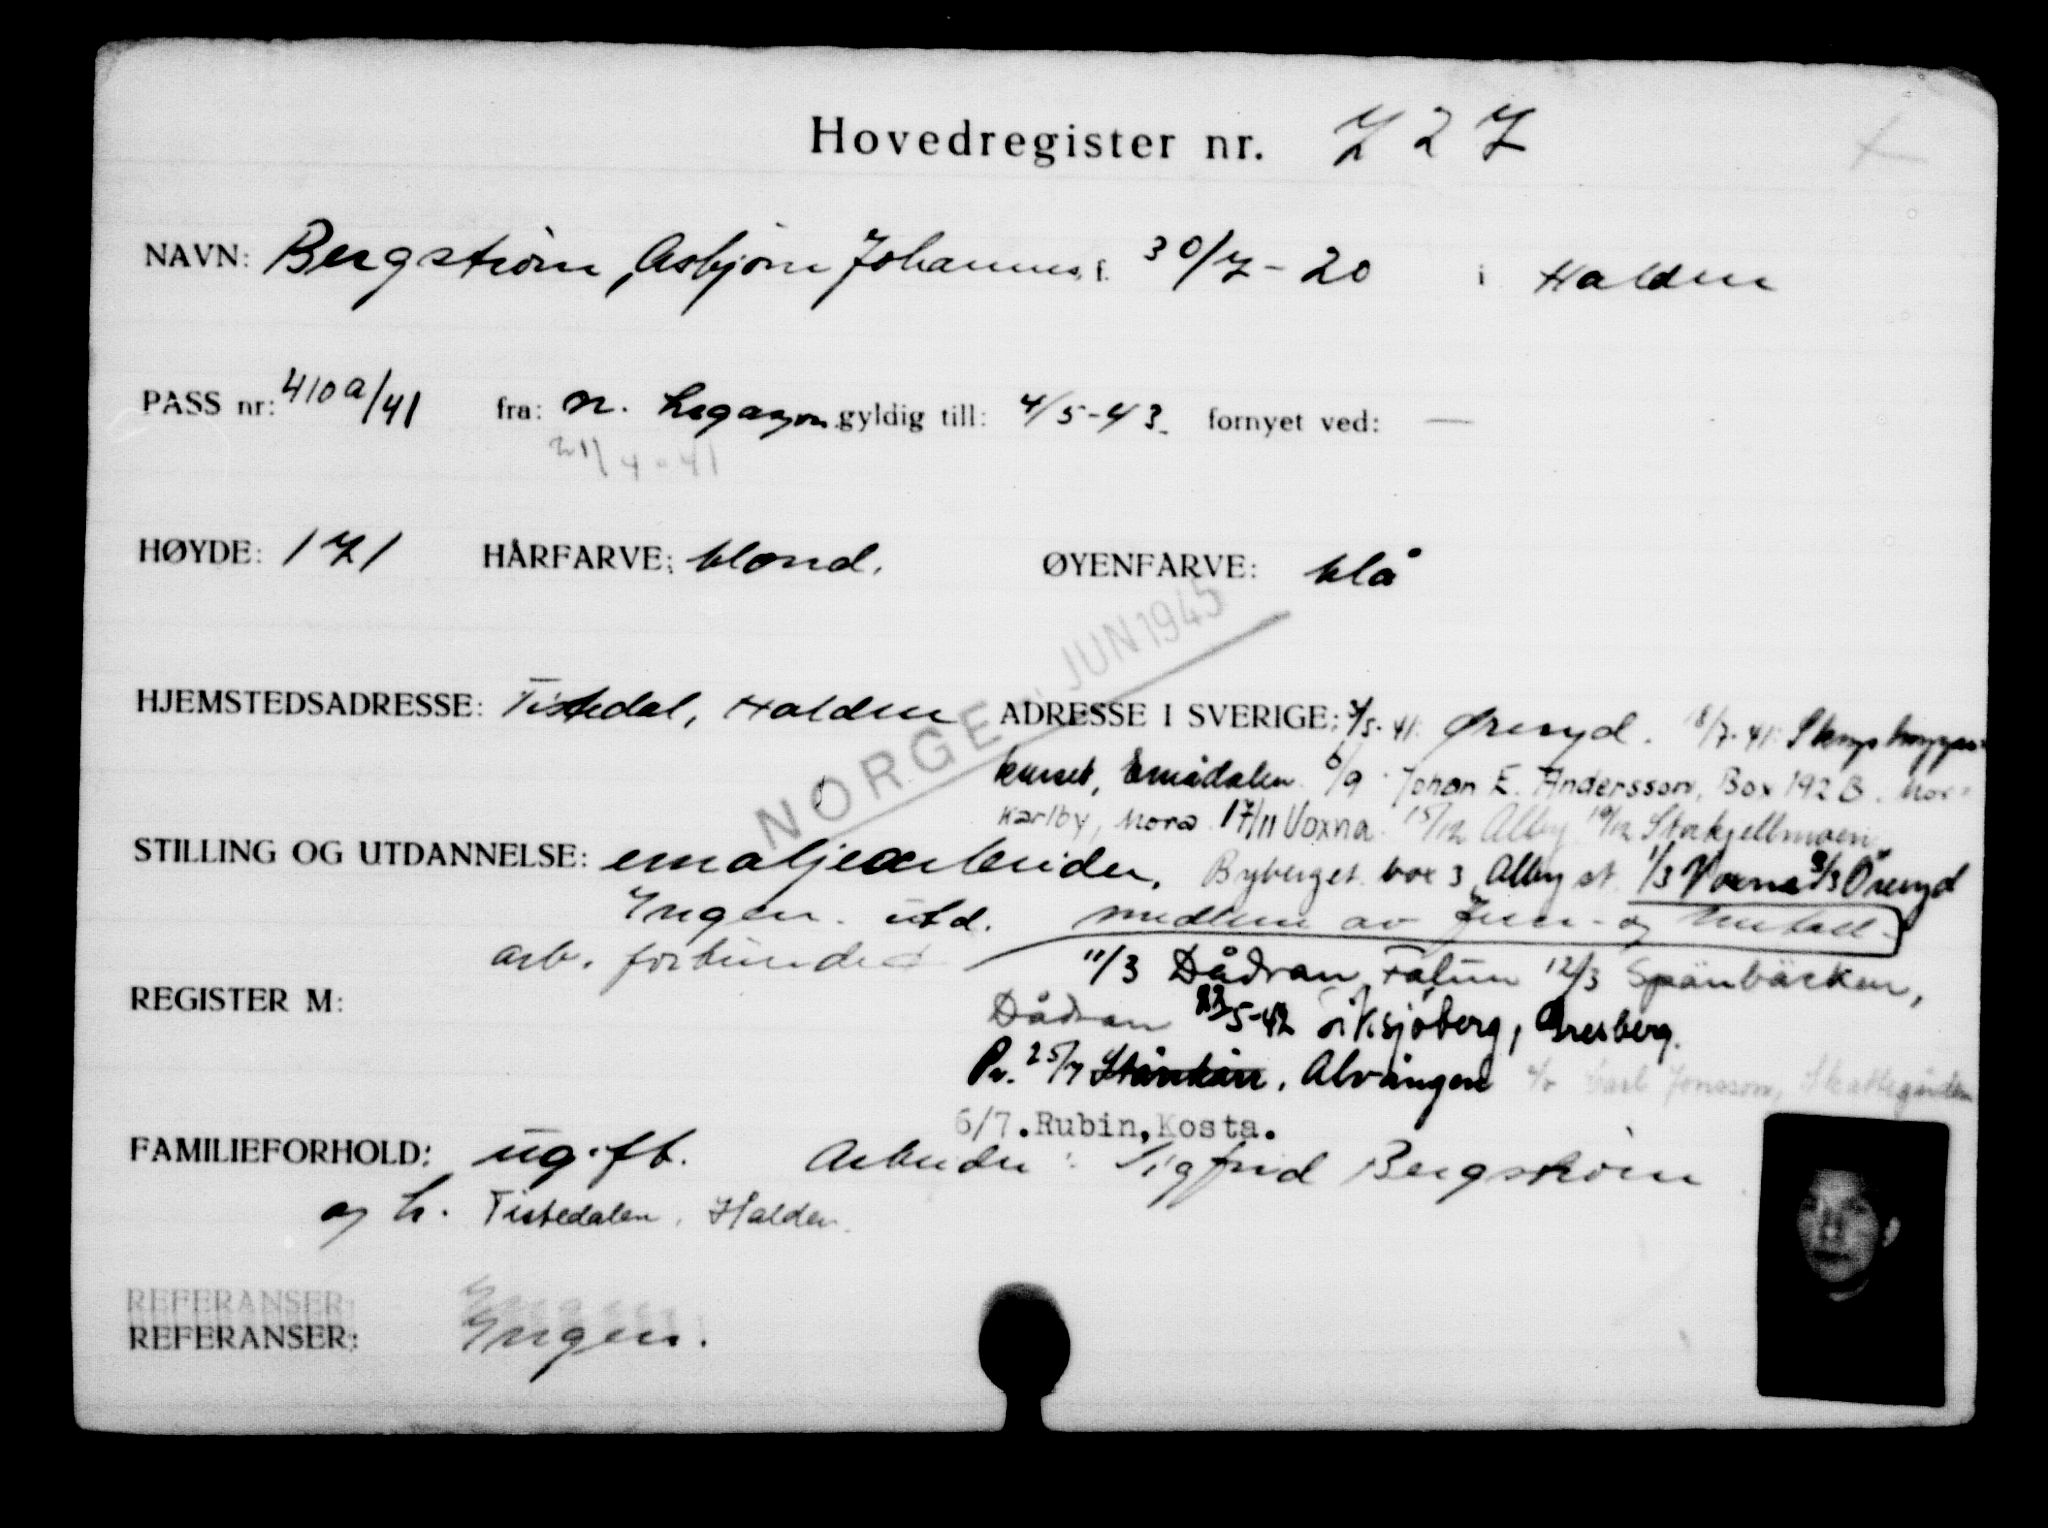 Hovedregister nr. 727
NAVN: Bergstrøm, Asbjørn Johannes f. 30/7-20 i Halden
PASS nr: 410a/41 fra: N. Legasjon gyldig till: 4/5-43 fornyet ved: —
21/4-41
HØYDE: 171 HÅRFARVE: blond. ØYENFARVE: blå
NORGE JUN 1945
HJEMSTEDSADRESSE: Tistedal, Halden ADRESSE I SVERIGE: 3/5-41: Øreryd. 18/7-41:
kurset, Emådalen 6/9 Johan E. Andersson, Box 192 B. Nor-
Karlby, Mora 17/11 Voxna 15/12 Alby 19/12
STILLING OG UTDANNELSE: emaljearbeider. Byberget box 3 Alby st. 1/3 Voxna 3/3 Öreryd
Ingen utd. medlem av Jern- og Metall-
arb. forbundet 11/3 Dådran, Falun 12/3 Spänbäcken,
REGISTER M: Dådran 22/5-42 Siksjöberg, Gresberg.
Pr. 25/7 Alvängen c/o Carl Jonsson, Skattegården
6/7. Rubin, Kosta.
FAMILIEFORHOLD: ugift. Arbeider: Sigfrid Bergstrøm
og h. Tistedalen, Halden.
REFERANSER:
REFERANSER: Ingen.